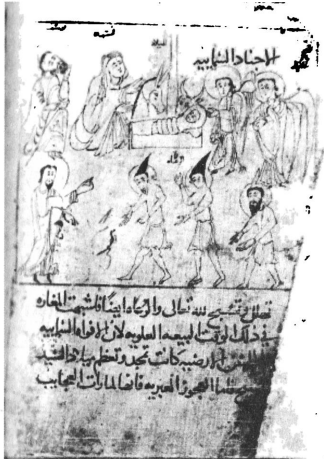 الاجناد السماييه
تصلي وتسبح لله تعالى والرعاه ايضا فاشبهت المغاره
في ذلك الوقت البيعه العلويه لان الافواه السماييه
كانت تمجد وتعظم ميلاد السيد
العجوز العبريه فانها لما رات العجايب